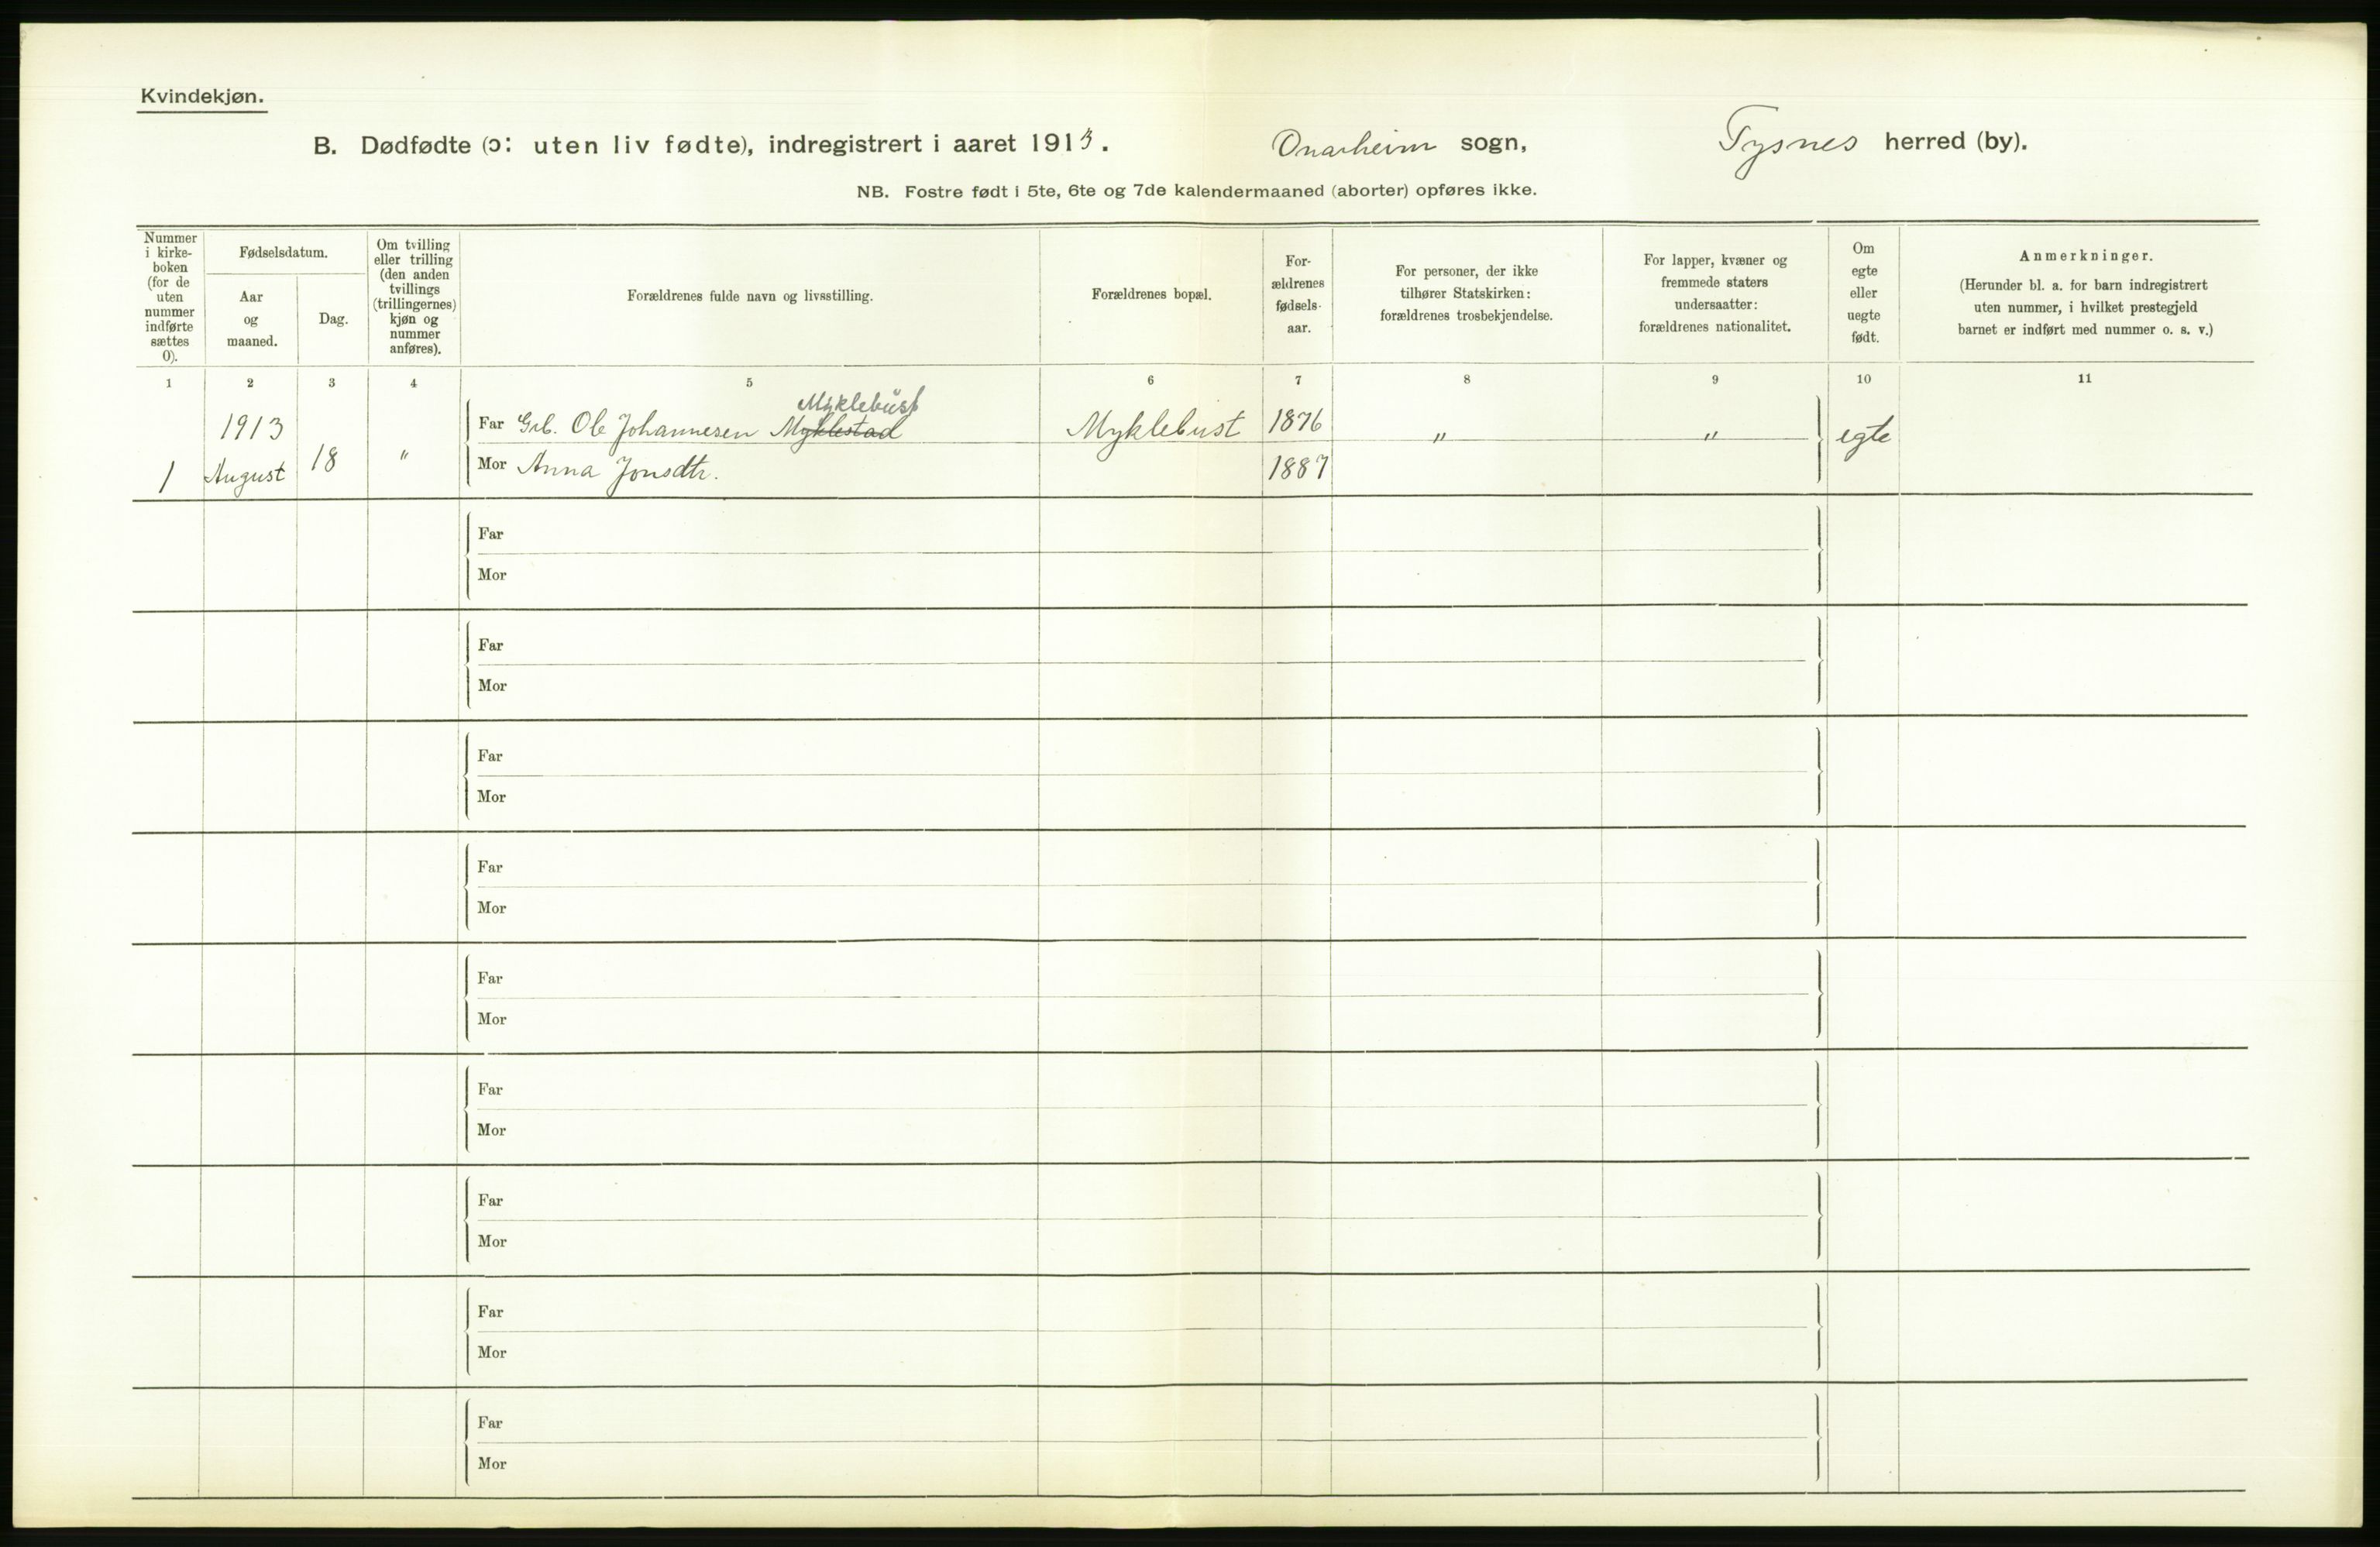 Kvindekjøn.
B. Dødfødte (ɔ: uten liv fødte), indregistrert i aaret 1913. Onarheim sogn, Tysnes herred (by).
NB. Fostre født i 5te, 6te og 7de kalendermaaned (aborter) opføres ikke.
Nummer
i kirke-
boken
(for de
uten
nummer
indførte
sættes
0).
Fødselsdatum.
Aar
og
maaned.
Dag.
Om tvilling
eller trilling
(den anden
tvillings
(trillingernes)
kjøn og
nummer
anføres).
Forældrenes fulde navn og livsstilling.
Forældrenes bopæl.
For-
ældrenes
fødsels-
aar.
For personer, der ikke
tilhører Statskirken:
forældrenes trosbekjendelse.
For lapper, kvæner og
fremmede staters
undersaatter:
forældrenes nationalitet.
Om
egte
eller
uegte
født.
Anmerkninger.
(Herunder bl. a. for barn indregistrert
uten nummer, i hvilket prestegjeld
barnet er indført med nummer o. s. v.)
1 2 3 4 5 6 7 8 9 10 11
Myklebust
1913 Far Grb. Ole Johannesen Myklestad Myklebust 1876 " " egte
1 August 18 " Mor Anna Jonsdtr. 1887
Far
Mor
Far
Mor
Far
Mor
Far
Mor
Far
Mor
Far
Mor
Far
Mor
Far
Mor
Far
Mor